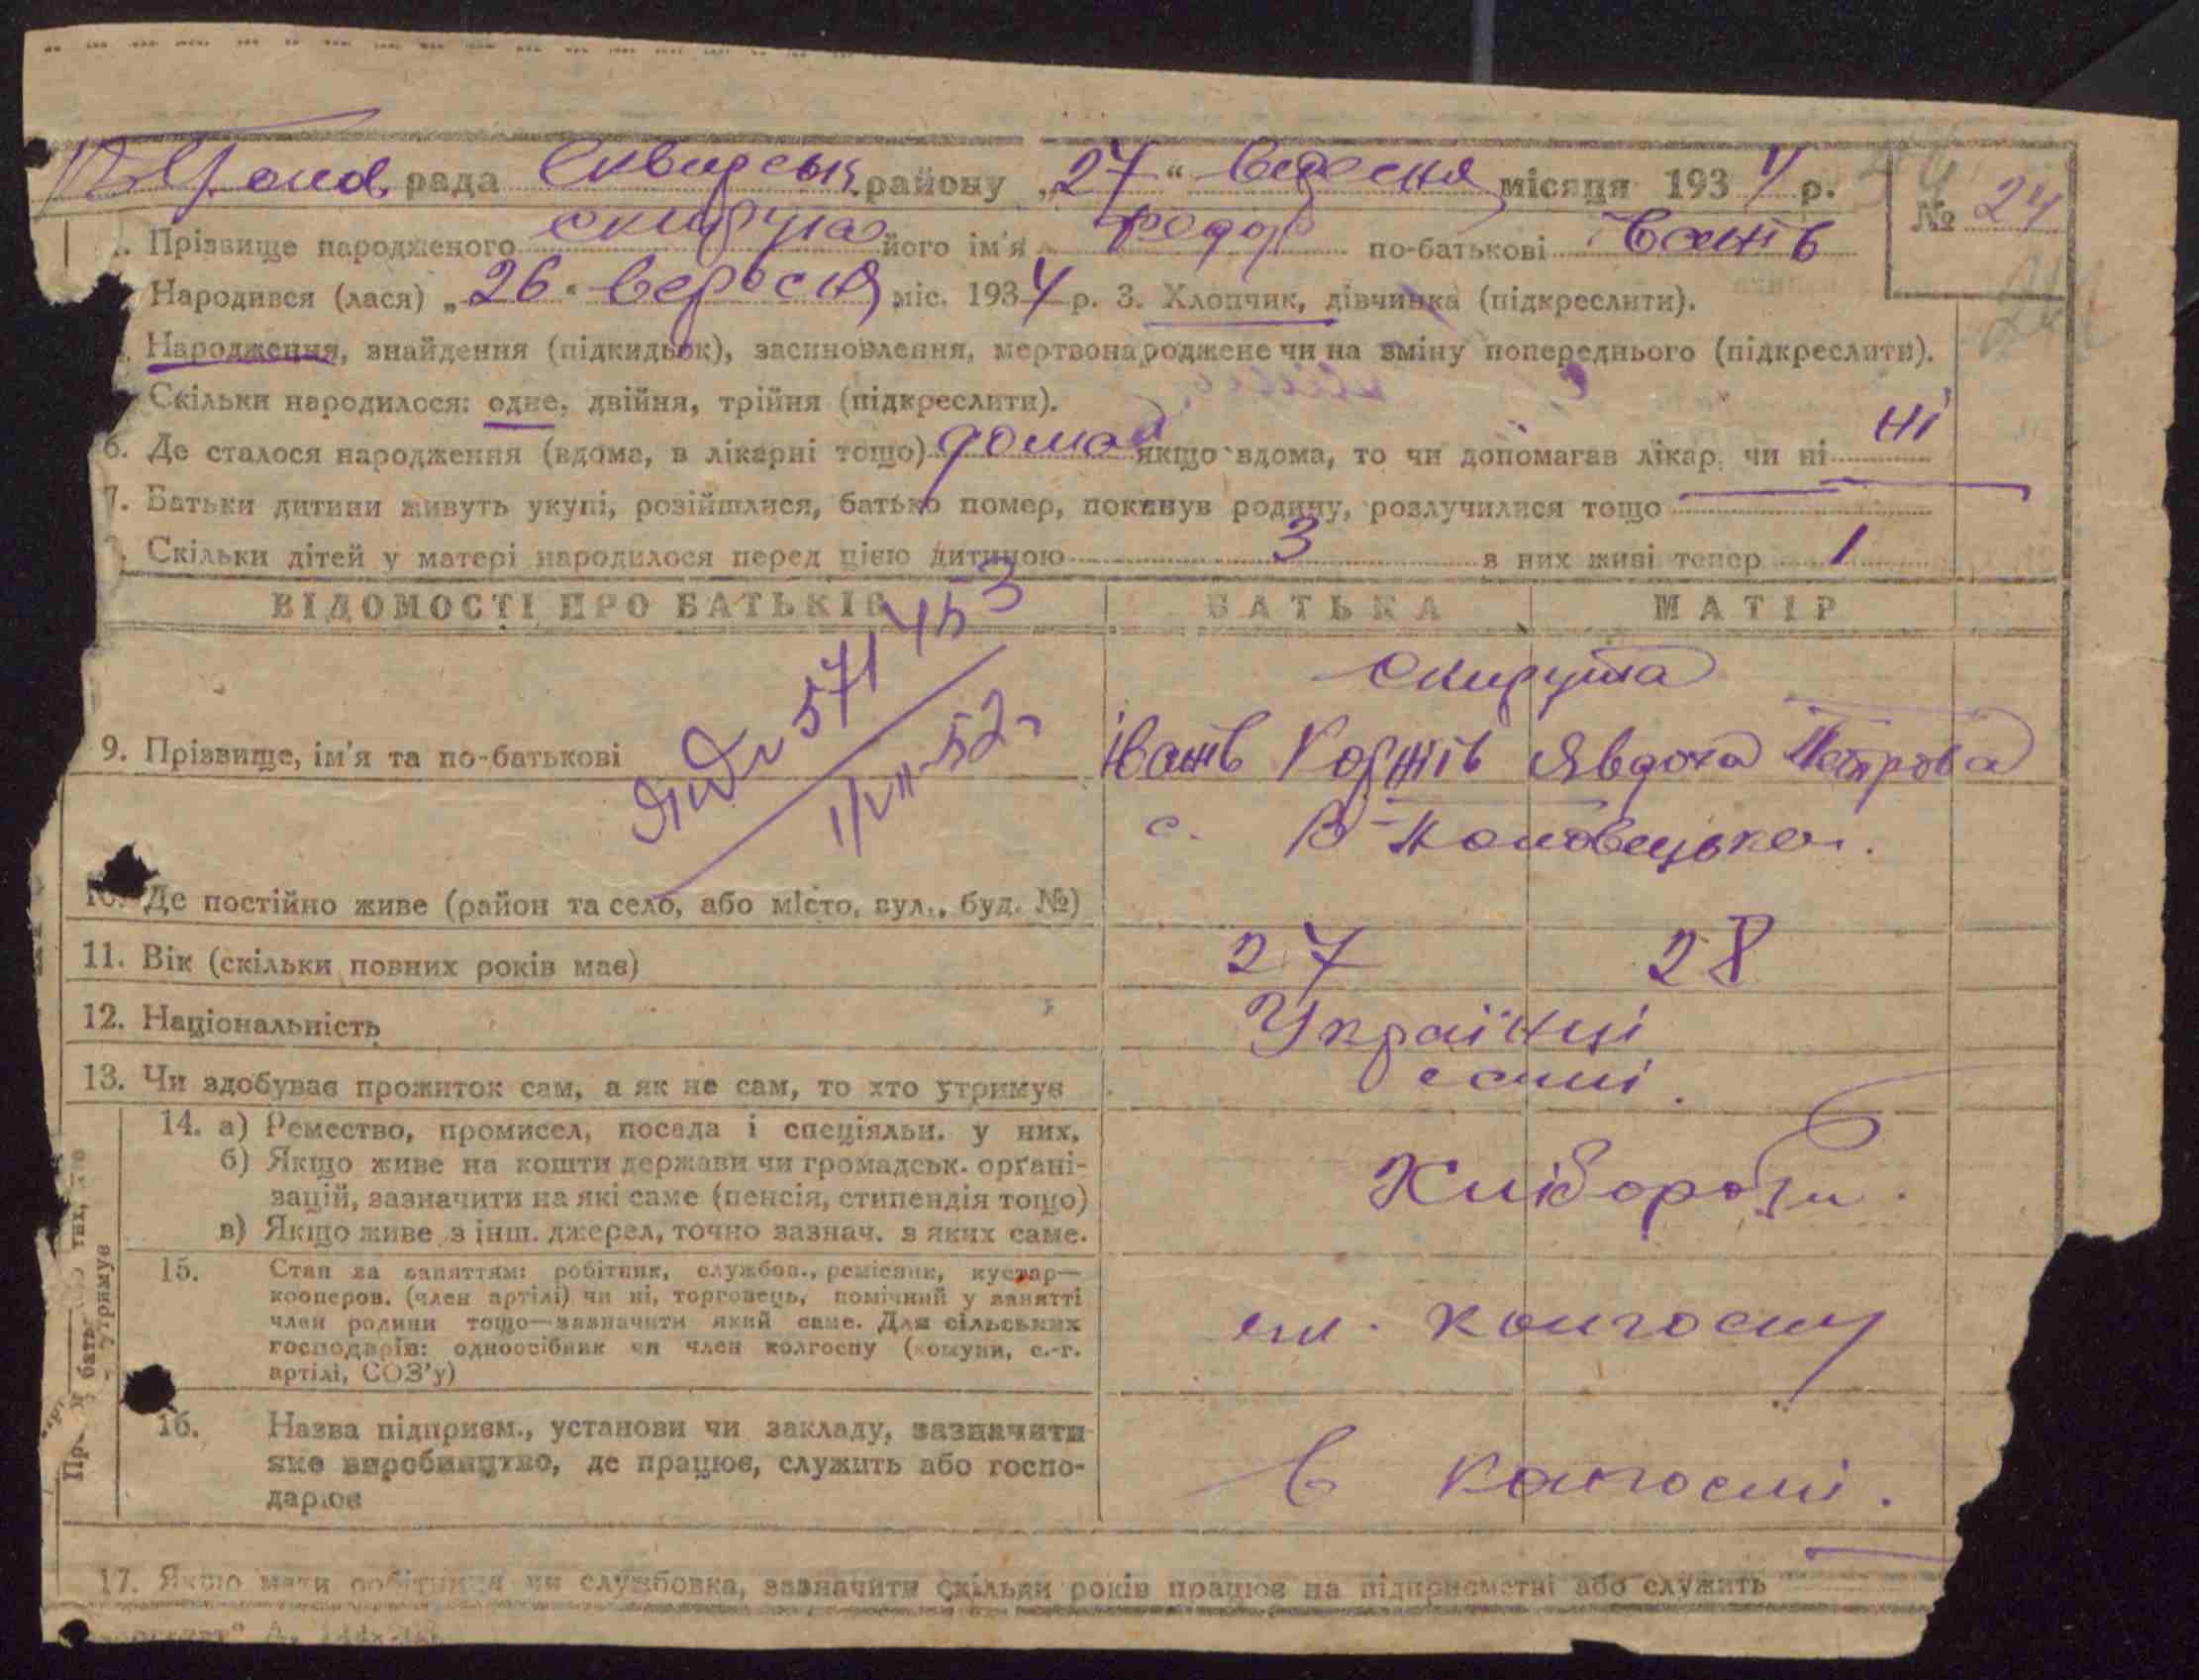 рада Сквирськ. району „27“ вересня місяця 1934 р. № 24
Прізвище народженого Скирута його ім'я Федор по-батькові Іванів
Народився (лася) „26“ вересня міс. 1934 р. 3. Хлопчик, дівчинка (підкреслити).
Народження, знайдення (підкидьок), засиновлення, мертвонароджене чи на зміну попереднього (підкреслити).
Скільки народилося: одне, двійня, трійня (підкреслити).
6. Де сталося народження (вдома, в лікарні тощо) дома якщо вдома, то чи допомагав лікар, чи ні ні
7. Батьки дитини живуть укупі, розійшлися, батько помер, покинув родину, розлучилися тощо
Скільки дітей у матері народилося перед цією дитиною 3 з них живі тепер 1
ВІДОМОСТІ ПРО БАТЬКІВ БАТЬКА МАТІР
571453
1/VII-52
Скирута
9. Прізвище, ім'я та по-батькові Іванів Явдоха Петрова
с.
10. Де постійно живе (район та село, або місто, вул., буд. №)
11. Вік (скільки повних років має) 27 28
12. Національність Українці
13. Чи здобуває прожиток сам, а як не сам, то хто утримує самі.
14. а) Ремество, промисел, посада і спеціяльн. у них,
б) Якщо живе на кошти держави чи громадськ. орґані-
зацій, зазначити на які саме (пенсія, стипендія тощо)
в) Якщо живе з інш. джерел, точно зазнач. з яких саме.
Хлібороби.
15. Стан за заняттям: робітник, службов., ремісник, кустар—
кооперов. (член артілі) чи ні, торговець, помічний у занятті
член родини тощо—зазначити який саме. Для сільських
господарів: одноосібник чи член колгоспу (комуни, с.-г.
артілі, СОЗ'у)
чл. колгоспу
16. Назва підприєм., установи чи закладу, зазначити
яке виробництво, де працює, служить або госпо-
дарює
в колгоспі.
17. Якщо мати робітниця чи службовка, зазначити скільки років працює на підприємстві або служить